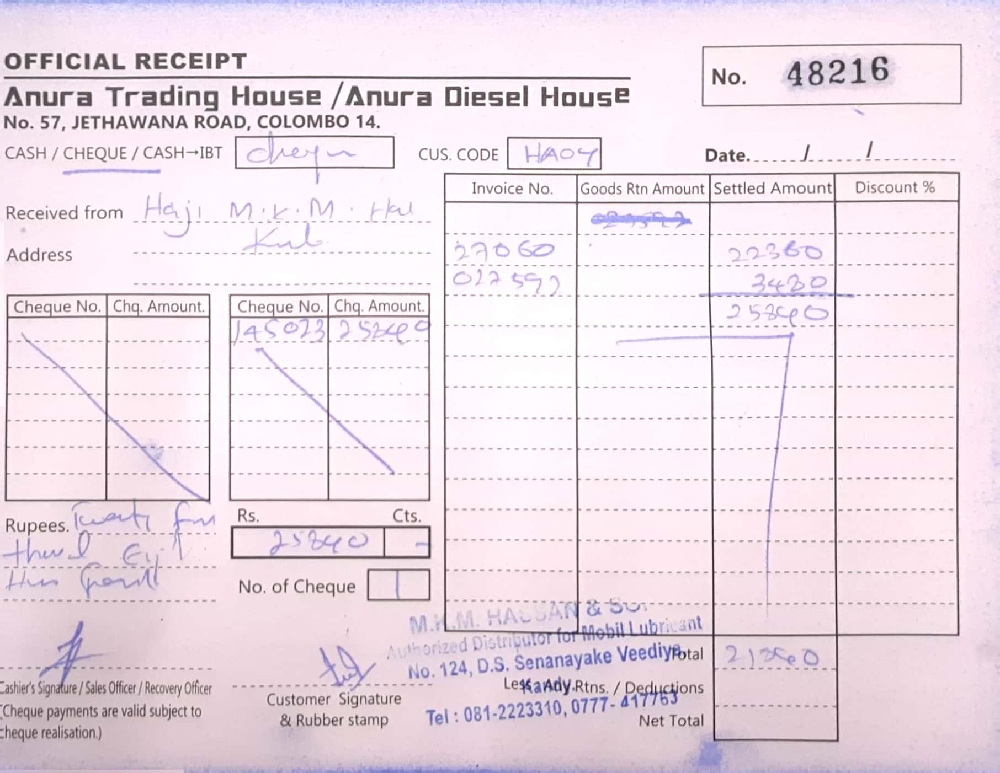 OFFICIAL RECEIPT
No. 48216
Anura Trading House /Anura Diesel House
No. 57, JETHAWANA ROAD, COLOMBO 14.
CASH / CHEQUE / CASH→IBT
CUS. CODE HA04
Date....../....../......
Invoice No. Goods Rtn Amount Settled Amount Discount %
Received from Haji M.K.M.
Address
27060 22360
027592 3480
25840
Cheque No. Chq. Amount. Cheque No. Chq. Amount.
145023 25840
Rupees. Twenty
Rs. Cts.
25840 -
No. of Cheque 1
M.K.M. HASSAN &
Authorized Distributor for Mobil Lubricant
No. 124, D.S. Senanayake Veediya
Kandy.
Tel : 081-2223310, 0777-417763
Total
Less Rtns. / Deductions
Net Total
Cashier's Signature / Sales Officer / Recovery Officer
(Cheque payments are valid subject to
cheque realisation.)
Customer Signature
& Rubber stamp